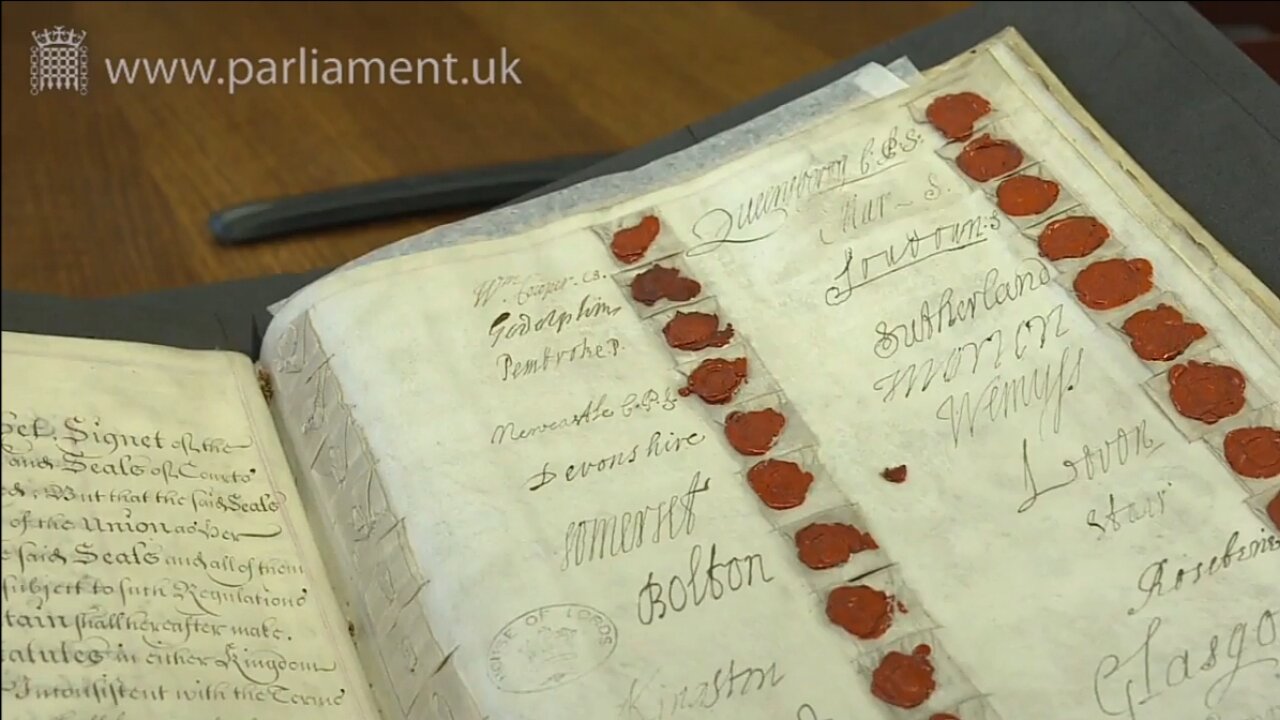 www.parliament.uk
Set. Signet of the
and Seals of Courts
But that the said Seals
of the Union as Her
said Seals and all of them
subject to such Regulations
shall hereafter make.
Statutes in either Kingdom
Inconsistent with the Terms
Wm. Cowper. CS.
Godolphin
Pembroke P.
Newcastle C.P.S.
Devonshire
Somerset
Bolton
Kingston
HOUSE OF LORDS
Queensberry C.P.S.
Mar S.
Loudoun S
Sutherland
Morton
Wemyss
Leven
Stair
Roseberie
Glasgo